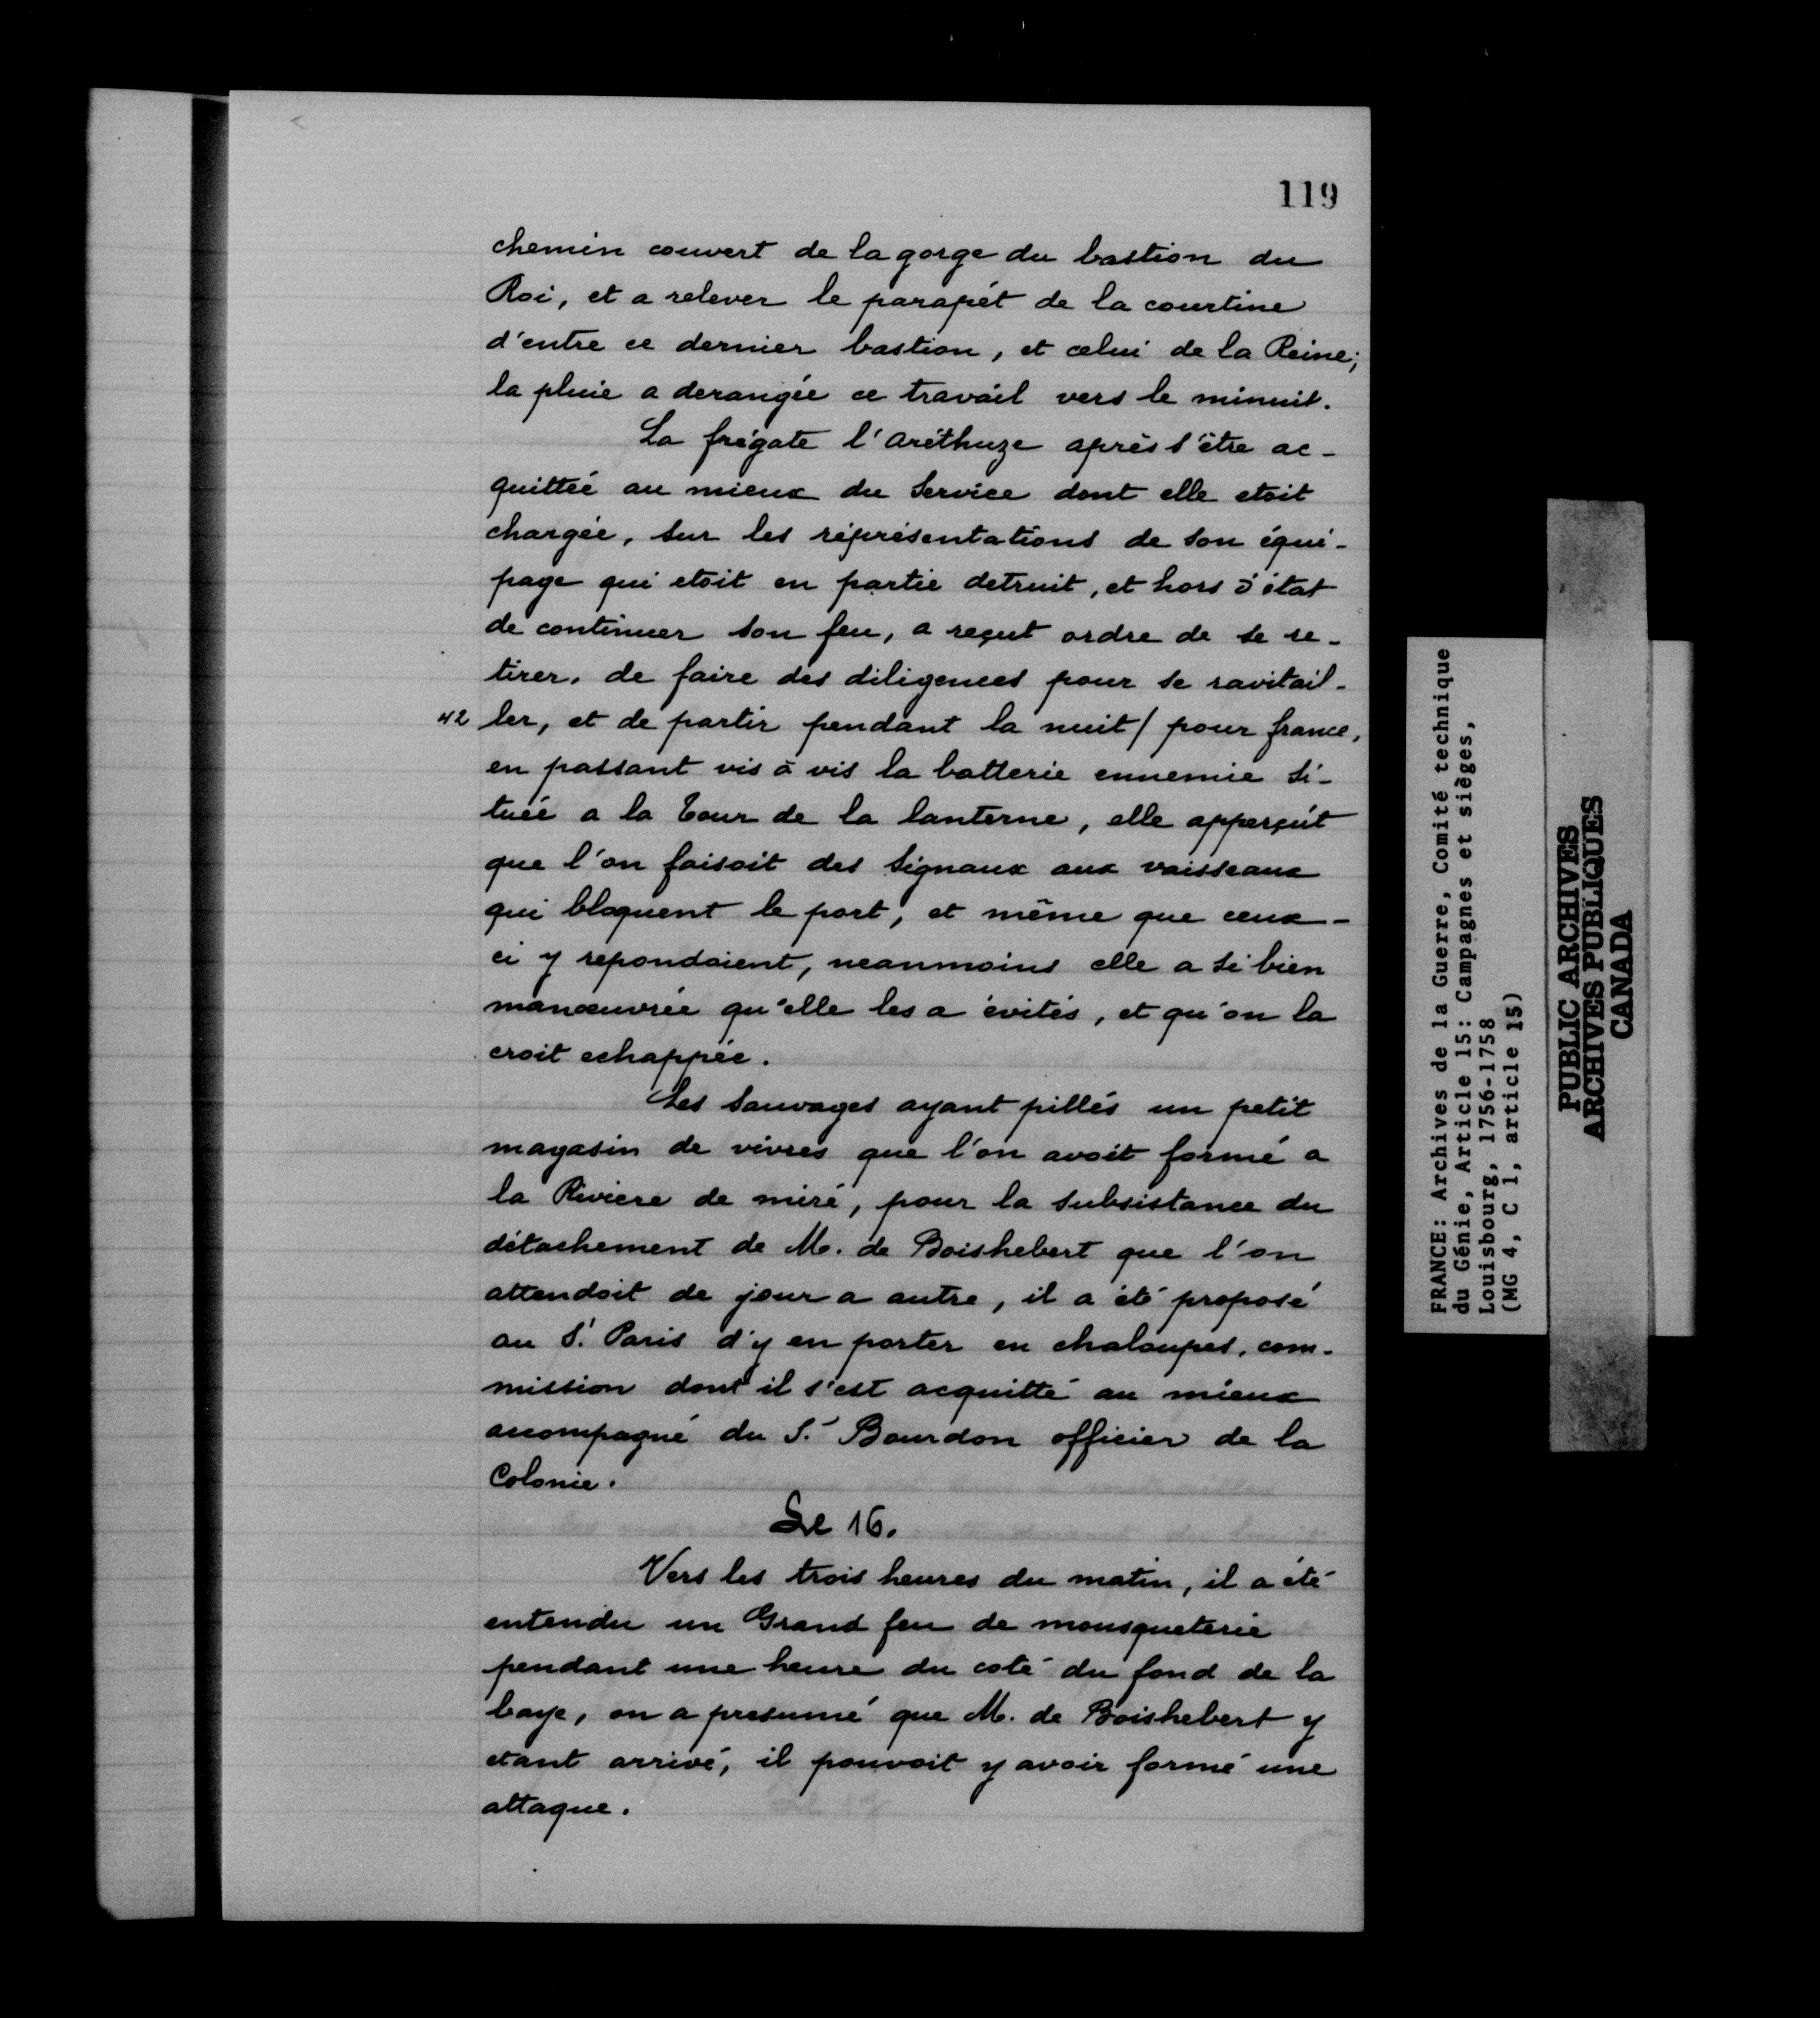 119
chemin couvert de la gorge du bastion du
Roi, et a relever le parapét de la courtine
d'entre ce dernier bastion, et celui de la Reine;
la pluie a derangée ce travail vers le minuit.
La frégate l'aréthuze après s'être ac-
quittée au mieux du Service dont elle etoit
chargée, sur les réprésentations de son équi-
page qui etoit en partie detruit, et hors d'état
de continuer son feu, a reçut ordre de se re-
tirer, de faire des diligences pour se ravitail-
42 ler, et de partir pendant la nuit / pour france,
en passant vis à vis la batterie ennemie si-
tuée a la Tour de la lanterne, elle apperçût
que l'on faisoit des signaux aux vaisseaux
qui bloquent le port, et même que ceux-
ci y repondaient, neanmoins elle a si bien
manœuvrée qu'elle les a évités, et qu'on la
croit echappée.
Les Sauvages ayant pillés un petit
magasin de vivres que l'on avoit formé a
la Riviere de miré, pour la subsistance du
détachement de M. de Boishebert que l'on
attendoit de jour a autre, il a été proposé
au S.r Paris d'y en porter en chaloupes, com-
mission dont il s'est acquitté au mieux
accompagné du S.r Bourdon officier de la
Colonie.
Le 16.
Vers les trois heures du matin, il a été
entendu un Grand feu de mousqueterie
pendant une heure du coté du fond de la
baye, on a presumé que M. de Boishebert y
etant arrivé, il pouvoit y avoir formé une
attaque.
FRANCE: Archives de la Guerre, Comité technique
du Génie, Article 15: Campagnes et sièges,
Louisbourg, 1756-1758
(MG 4, C 1, article 15)
PUBLIC ARCHIVES
ARCHIVES PUBLIQUES
CANADA